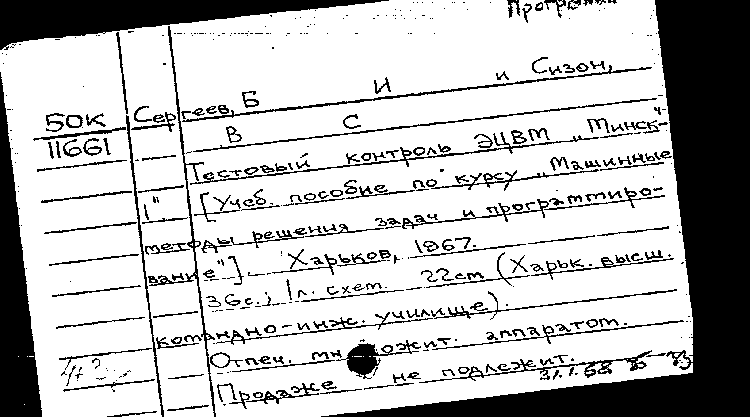 Программи
50К Сергеев, Б И и Сизон,
11661 В С
Тестовый контроль ЭЦВМ „Минск-
1" [Учеб. пособие по курсу „Машинные
методы решения задач и программиро-
вание"]. Харьков, 1967.
36с.; 1л. схем. 22см (Харьк. высш.
командно-инж. училище).
Отпеч. мн ожит. аппаратом.
Продаже не подлежит.
31.1.68